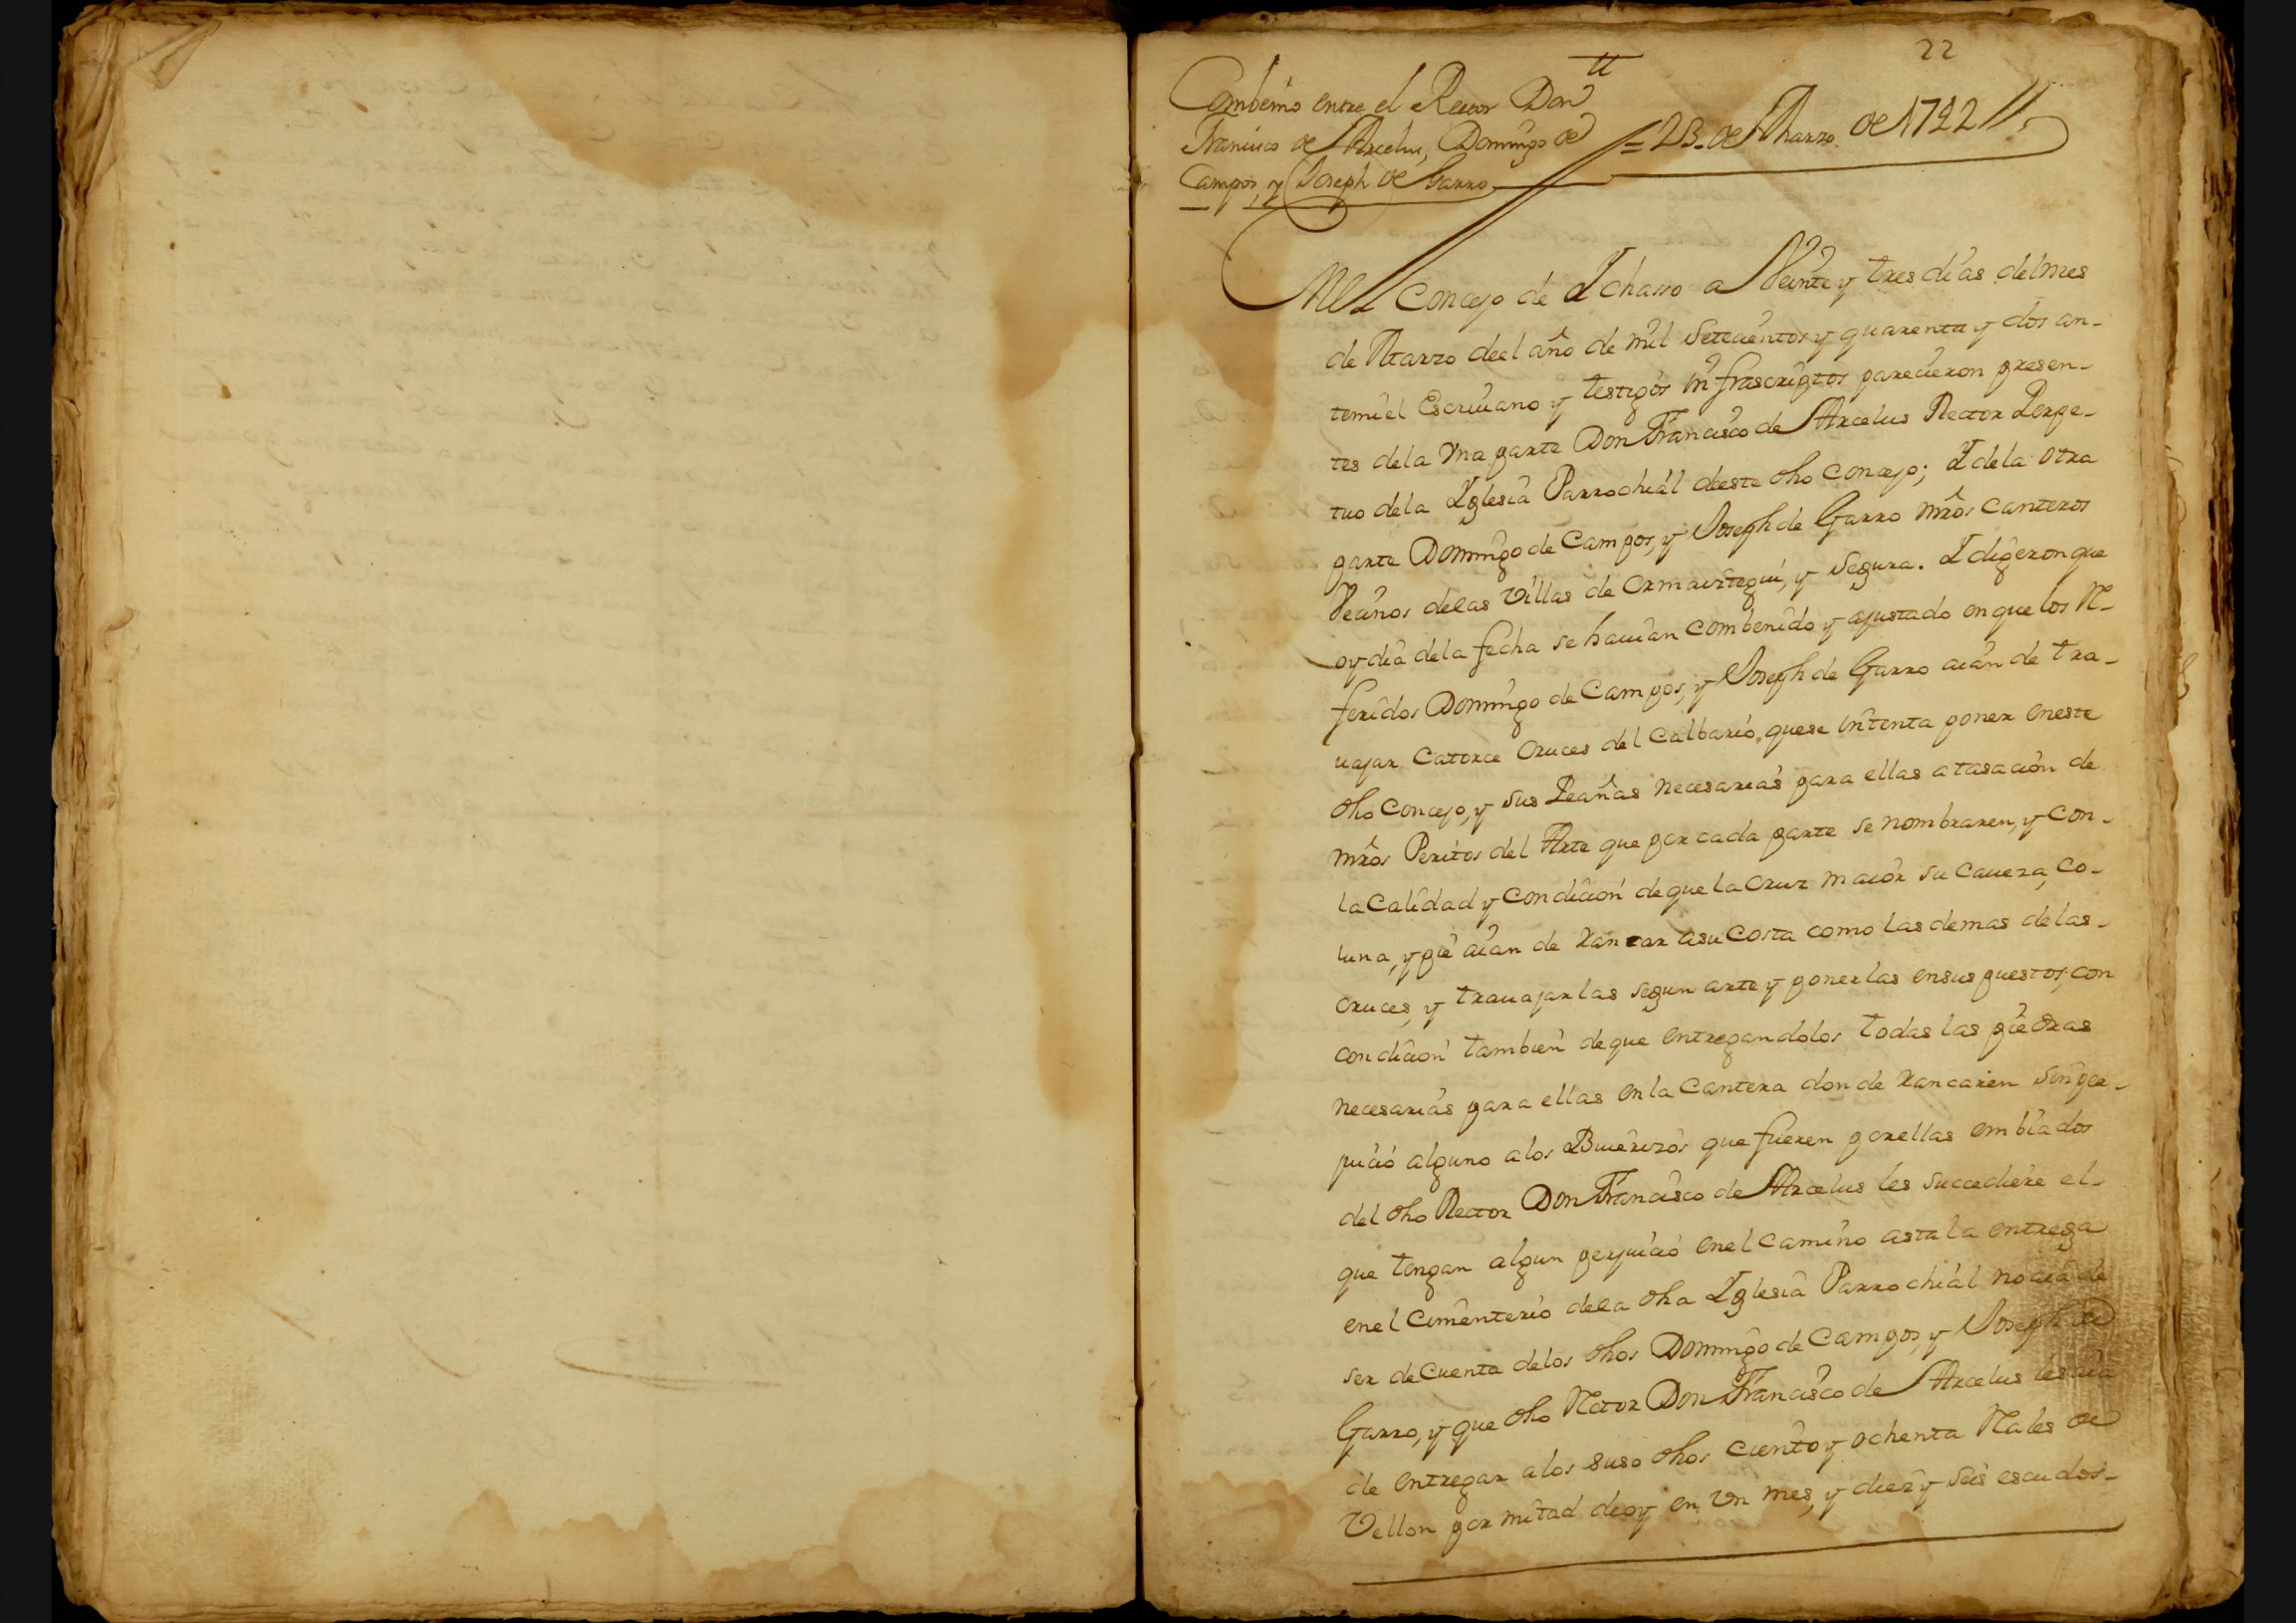 22
Combenio entre el Rector Don
Francisco de Arcelus, Domingo de
Campos, y Joseph de Garro
= 23. de Marzo de 1742
En el Concejo de Ychasso a Veinte y tres dias del mes
de Marzo deel año de mil Setecientos y quarenta y dos an-
temi el Escriuano y testigos infrascriptos parecieron presen-
tes dela vna parte Don Francisco de Arcelus Rector Perpe-
tuo dela Yglesia Parrochial deeste dho Concejo; Y dela otra
parte Domingo de Campos, y Joseph de Garro mros Canteros
Vecinos delas Villas de Ormaiztegui, y Segura. Y digeron que
oy dia dela fecha se hauian combenido y ajustado en que los R-
feridos Domingo de Campos, y Joseph de Garro aian de tra-
uajar Catorce Cruces del Calbario, quese intenta poner eneste
dho Concejo, y sus Peañas necesarias para ellas a tasacion de
mros Peritos del Arte que por cada parte se nombraren, y con-
la Calidad y Condicion de que la Cruz maior su Caueza, co-
luna, y pie aian de rancar asu Costa como las demas de las-
cruces, y trauajarlas segun arte y ponerlas ensus puestos; con
condicion tambien de que entregandolos todas las piedras
necesarias para ellas enla Cantera donde rancaren sin per-
juicio alguno alos Bueierizos que fueren porellas embiados
del dho Rector Don Francisco de Arcelus les succediere el-
que tengan algun perjuicio enel Camino asta la entrega
enel Cimenterio dela dha Yglesia Parrochial no aia de
ser de Cuenta delos dhos Domingo de Campos, y Joseph de
Garro, y que dho Rctor Don Francisco de Arcelus les aia
de entregar alos suso dhos ciento y ochenta Rales de
Vellon por mitad de oy en vn mes, y diez y seis escudos-